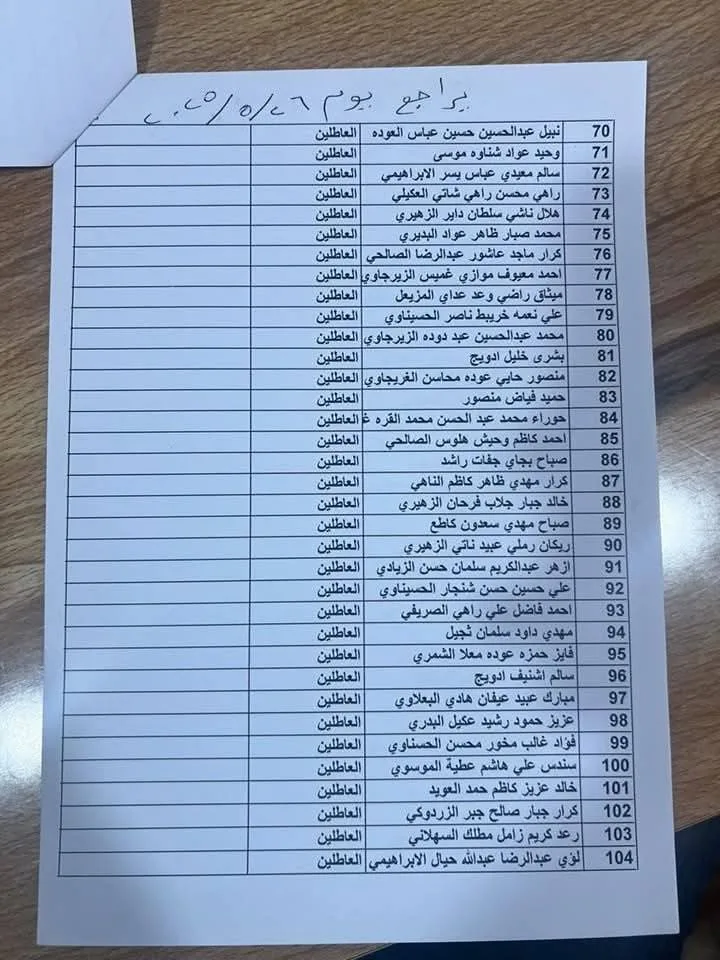 يراجع يوم ٢٦/٥/٢٠٢٥
70 نبيل عبدالحسين حسين عباس العوده العاطلين
71 وحيد عواد شناوه موسى العاطلين
72 سالم معيدي عباس يسر الابراهيمي العاطلين
73 راهي محسن راهي شاتي العكيلي العاطلين
74 هلال ناشي سلطان داير الزهيري العاطلين
75 محمد صبار ظاهر عواد البديري العاطلين
76 كرار ماجد عاشور عبدالرضا الصالحي العاطلين
77 احمد معيوف موازي غميس الزيرجاوي العاطلين
78 ميثاق راضي وعد عداي المزيعل العاطلين
79 علي نعمه خريبط ناصر الحسيناوي العاطلين
80 محمد عبدالحسين عبد دوده الزيرجاوي العاطلين
81 بشرى خليل ادويج العاطلين
82 منصور حايي عوده محاسن الغريجاوي العاطلين
83 حميد فياض منصور العاطلين
84 حوراء محمد عبد الحسن محمد القره غ العاطلين
85 احمد كاظم وحيش هلوس الصالحي العاطلين
86 صباح بجاي جفات راشد العاطلين
87 كرار مهدي ظاهر كاظم الناهي العاطلين
88 خالد جبار جلاب فرحان الزهيري العاطلين
89 صباح مهدي سعدون كاطع العاطلين
90 ريكان رملي عبيد ناتي الزهيري العاطلين
91 ازهر عبدالكريم سلمان حسن الزيادي العاطلين
92 علي حسين حسن شنجار الحسيناوي العاطلين
93 احمد فاضل علي راهي الصريفي العاطلين
94 مهدي داود سلمان ثجيل العاطلين
95 فايز حمزه عوده معلا الشمري العاطلين
96 سالم اشنيف ادويج العاطلين
97 مبارك عبيد عيفان هادي البعلاوي العاطلين
98 عزيز حمود رشيد عكيل البدري العاطلين
99 فؤاد غالب مخور محسن الحسناوي العاطلين
100 سندس علي هاشم عطية الموسوي العاطلين
101 خالد عزيز كاظم حمد العويد العاطلين
102 كرار جبار صالح جبر الزردوكي العاطلين
103 رعد كريم زامل مطلك السهلاني العاطلين
104 لؤي عبدالرضا عبدالله حيال الابراهيمي العاطلين